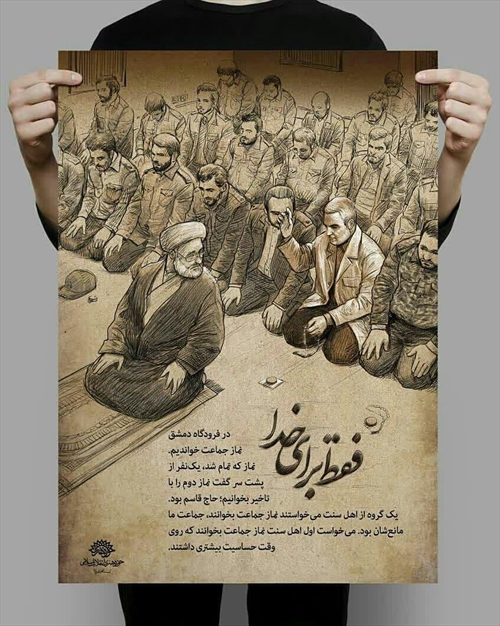 فقط برای خدا
در فرودگاه دمشق
نماز جماعت خواندیم.
نماز که تمام شد، یک‌نفر از
پشت سر گفت نماز دوم را با
تاخیر بخوانیم؛ حاج قاسم بود.
یک گروه از اهل سنت می‌خواستند نماز جماعت بخوانند، جماعت ما
مانع‌شان بود. می‌خواست اول اهل سنت نماز جماعت بخوانند که روی
وقت حساسیت بیشتری داشتند.
حوزه هنری انقلاب اسلامی